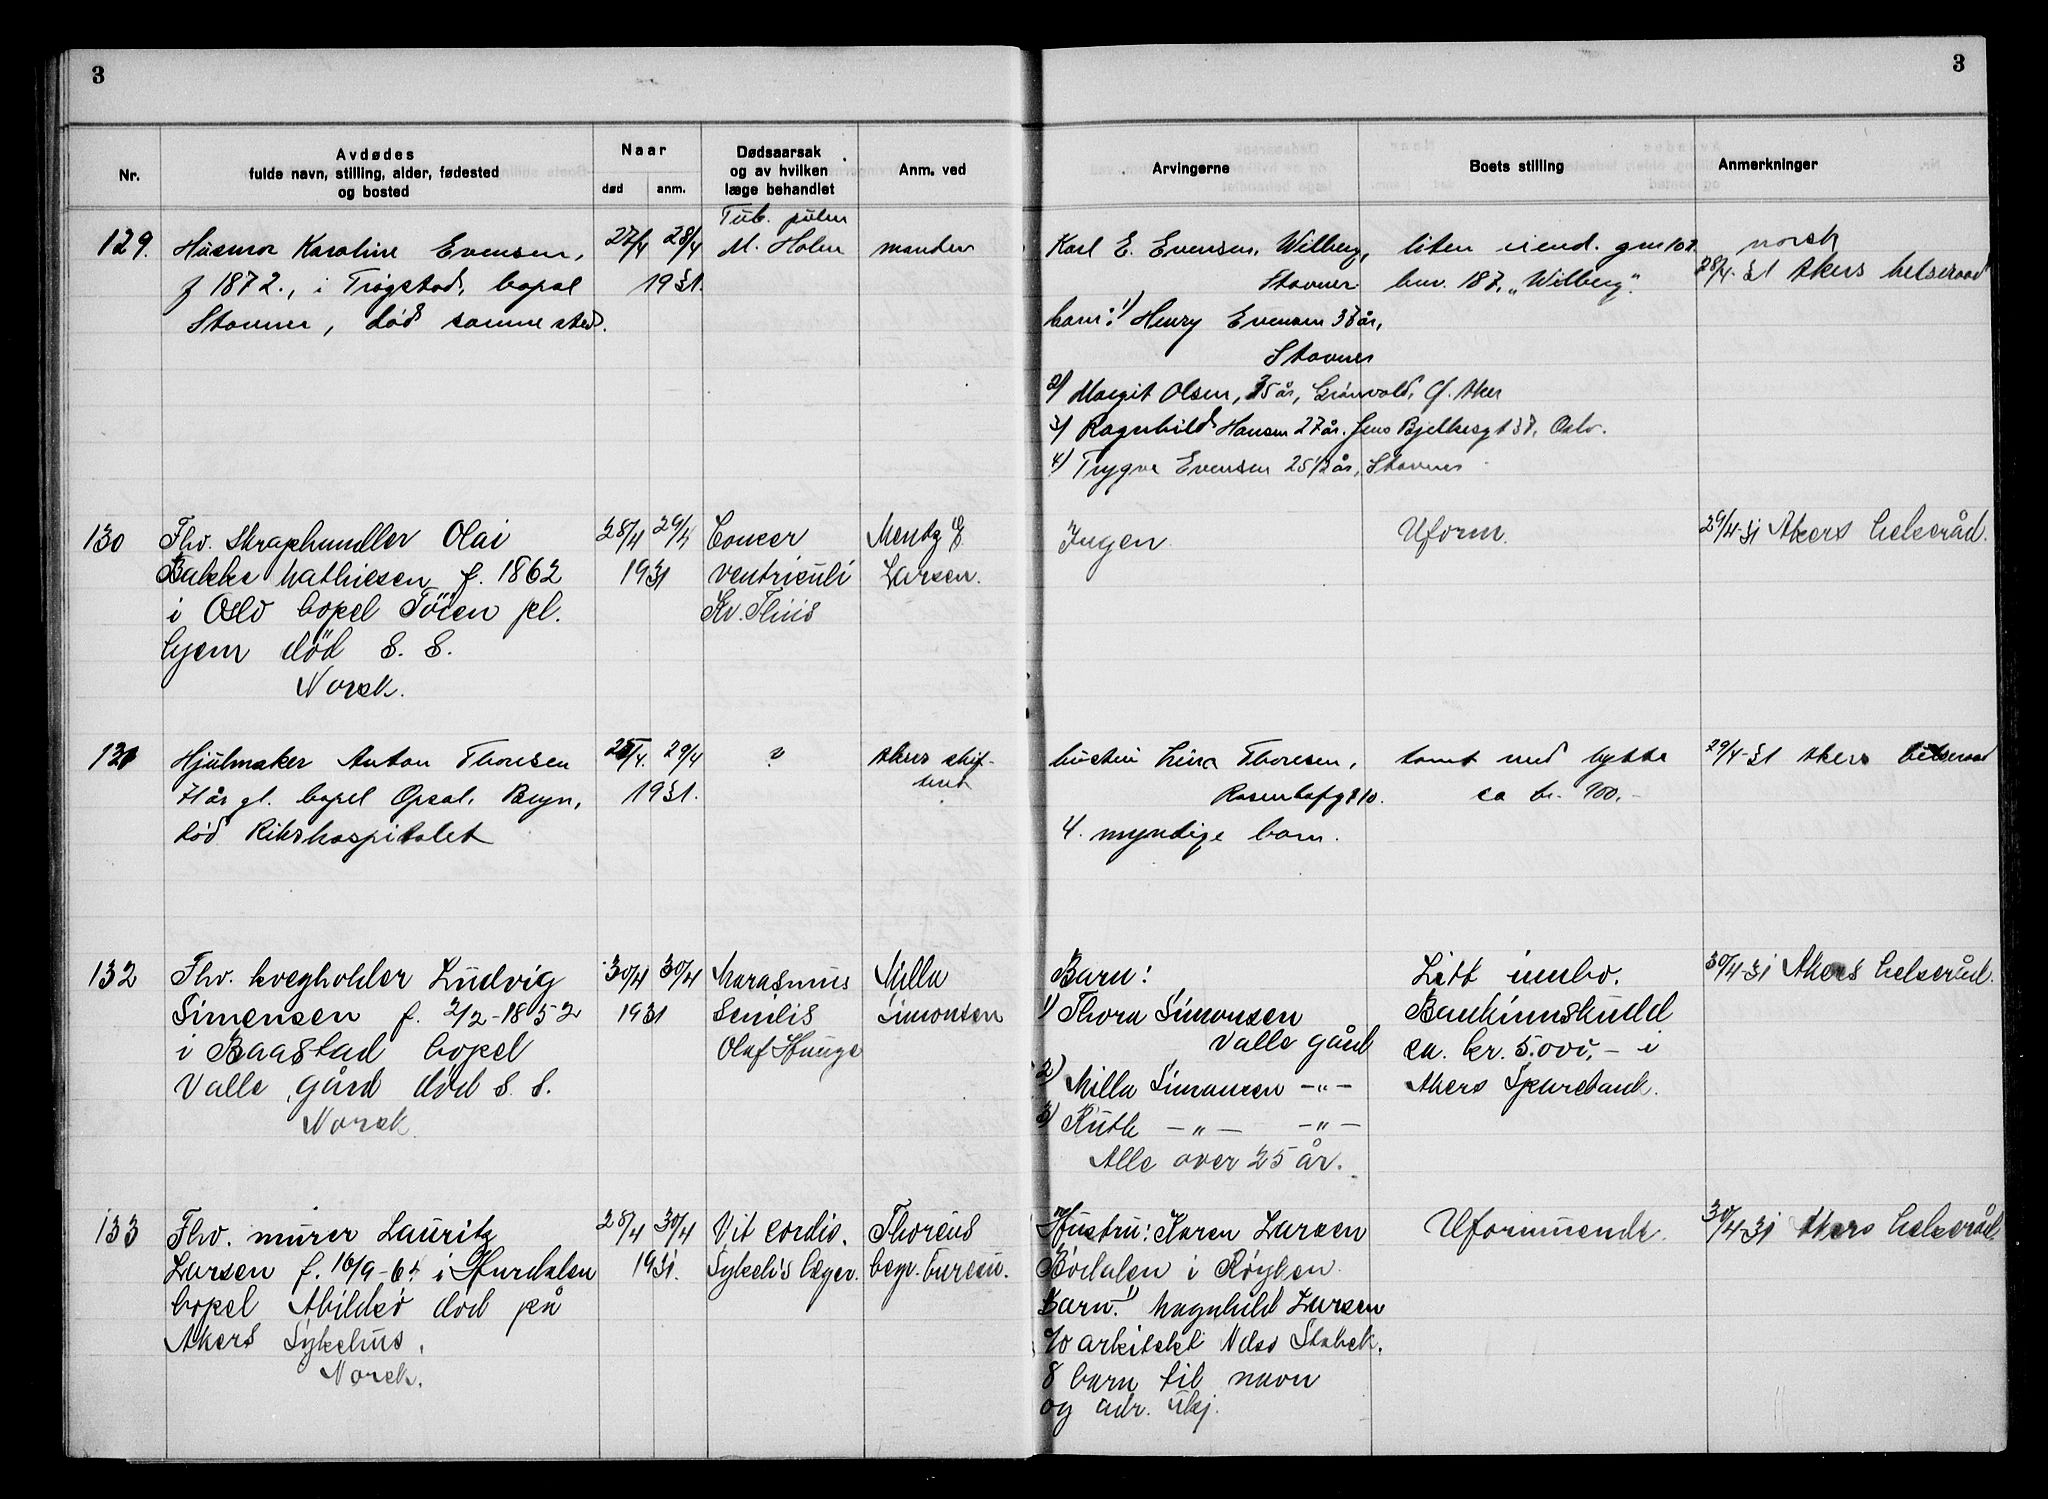 3
3
Nr.
Avdødes
fulde navn, stilling, alder, fødested
og bosted
Naar
død
anm.
Dødsaarsak
og av hvilken
læge behandlet
Anm. ved
Arvingerne
Boets stilling
Anmerkninger
129.
Husmor Karoline Evensen,
f 1872., i Trøgstad, bopel
Stovner, død samme sted.
27/4 28/4
1931.
Tub. pulm
M. Holm
manden
Karl E. Evensen, Wilberg,
Stovner
barn: 1) Henry Evensen 38 år,
Stovner
2) Margit Olsen, 35 år, Grönvold, Ø. Aker
3) Ragnhild Hansen 27 år. Jens Bjelkesgt 37, Oslo.
4) Trygve Evensen 25 1/2 år, Stovner
liten eiend. gnr 102.
bnr. 187, "Wilberg".
norsk
28/4-31 Akers helseraad
130
Fhv. Skraphandler Olai
Bakke Mathiesen f. 1862
i Oslo bopel Töien pl.
hjem död s. s.
Norsk.
28/4 29/4
1931
Cancer
ventriculi
Kv. Thiis
Mentz E.
Larsen.
Ingen
Uform.
29/4-31 Akers helseråd.
131
Hjulmaker Anton Thoresen
71 år gl. bopel Opsal, Bryn,
død Rikshospitalet
25/4. 29/4
1931.
?
Akers skif-
teret
hustru Lina Thoresen,
Rosenhofgt 10.
4. myndige barn.
tomt med hytte
ca kr. 900.-
29/4-31 Akers helseraad
132
Fhv. kvegholder Ludvig
Simensen f. 2/2-1852
i Baastad bopel
Valle gård död s. s.
Norsk
30/4 30/4
1931
Marasmus
Senilis
Olaf Hauge
Milla
Simonsen
Barn:
1) Thora Simonsen
Valle gård
2) Milla Simonsen -"-
3) Ruth -"- -"-
Alle over 25 år.
Litt innbo.
Bankinnskudd
ca. kr. 5.000,- i
Akers Sparebank.
30/4-31 Akers helseråd.
133
Fhv. murer Lauritz
Larsen f. 16/9-64 i Hurdalen
bopel Abildsö död på
Akers Sykehus.
Norsk.
28/4 30/4
1931.
Vit cordis.
Sykehs læger.
Thorens
begr. bureau.
Hustru: Karen Larsen
Bödalen i Röyken
Barn: 1) Magnhild Larsen
c/o arkitekt Nilss Stabek.
8 barn til navn
og adr. ukj.
Uformuende.
30/4-31 Akers helseråd.